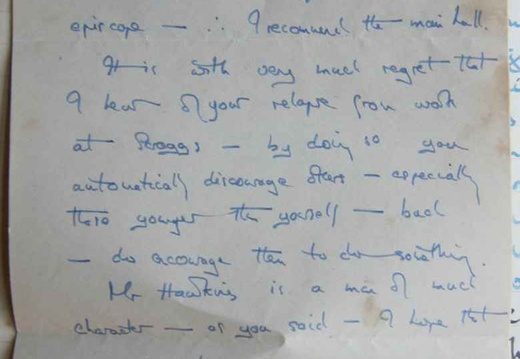 episcope — ∴ I recommend the main hall.
It is with very much regret that
I hear of your relapse from work
at Scroggs — by doing so you
automatically discourage others — especially
those younger than yourself — bad
— do encourage them to do something.
Mr Hawkins is a man of much
character — as you said — I hope that